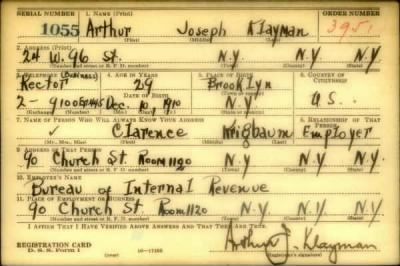 SERIAL NUMBER 1. NAME (Print) ORDER NUMBER
1055 Arthur Joseph Klayman 3951
(First) (Middle) (Last)
2. ADDRESS (Print)
24 W. 96 St. N.Y. N.Y. N.Y.
(Number and street or R. F. D. number) (Town) (County) (State)
3. TELEPHONE (Business) 4. AGE IN YEARS 5. PLACE OF BIRTH 6. COUNTRY OF CITIZENSHIP
Rector 29 Brooklyn
DATE OF BIRTH
2-9100 Dec. 10, 1910 N.Y. U.S.
(Exchange) (Number) (Mo.) (Day) (Yr.) (State or country)
7. NAME OF PERSON WHO WILL ALWAYS KNOW YOUR ADDRESS RELATIONSHIP OF THAT PERSON
Clarence Krigbaum Employer
(Mr., Mrs., Miss) (First) (Middle) (Last)
9. ADDRESS OF THAT PERSON
90 Church St. Room 1120 N.Y. N.Y. N.Y.
(Number and street or R. F. D. number) (Town) (County) (State)
10. EMPLOYER'S NAME
Bureau of Internal Revenue
11. PLACE OF EMPLOYMENT OR BUSINESS
90 Church St. Room 1120 N.Y. N.Y. N.Y.
(Number and street or R. F. D. number) (Town) (County) (State)
I AFFIRM THAT I HAVE VERIFIED ABOVE ANSWERS AND THAT THEY ARE TRUE.
REGISTRATION CARD Arthur J. Klayman
D. S. S. Form 1 (over) (Registrant's signature)